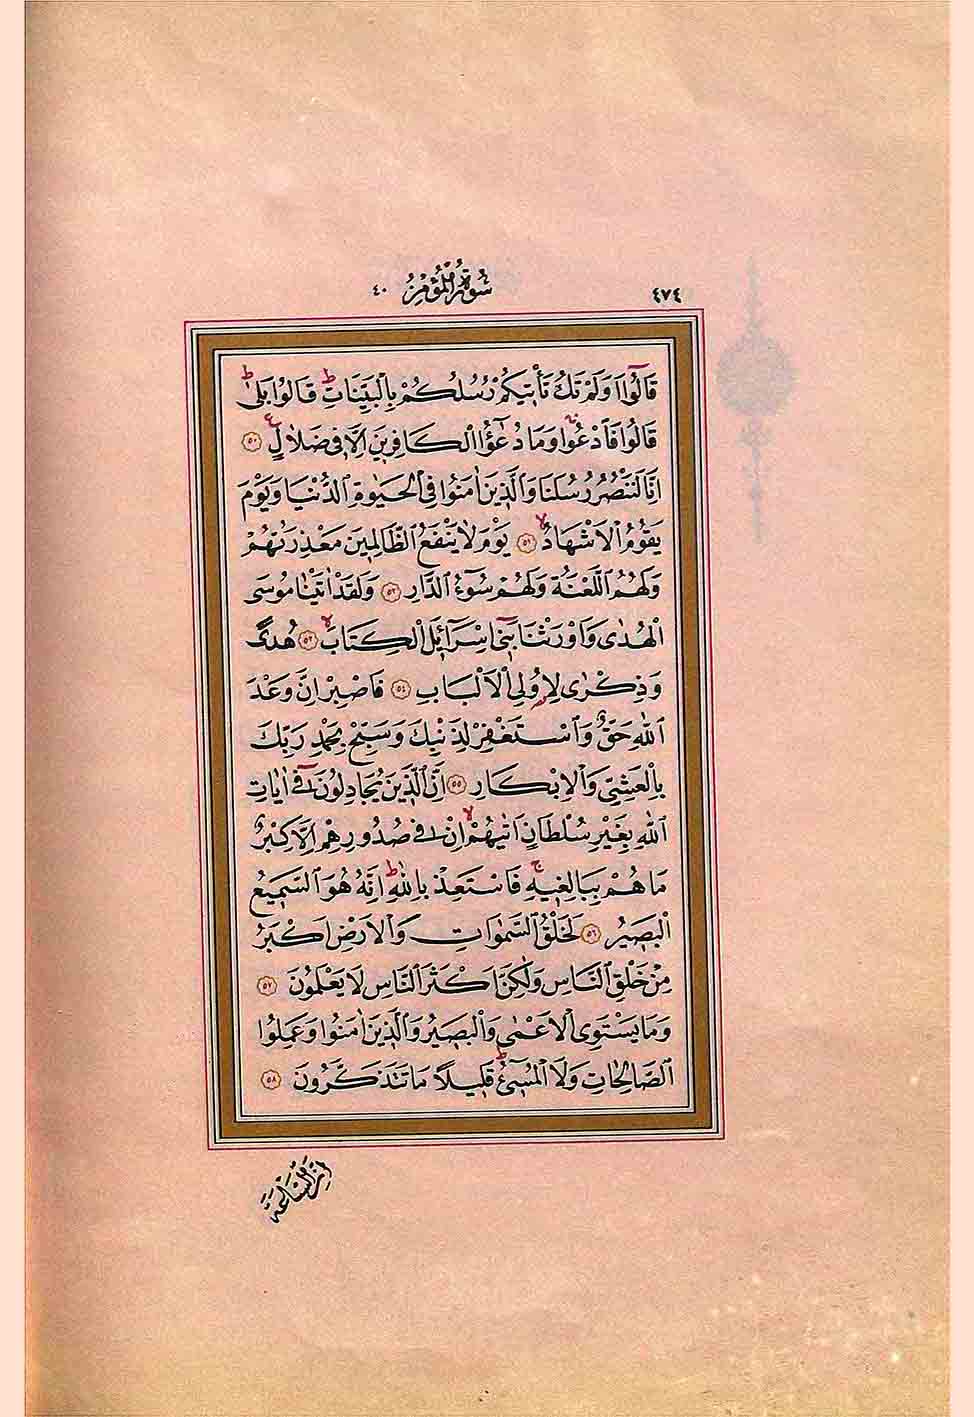 ٤٧٤ سُورَةُ الْمُؤْمِنِ ٤٠
قَالُٓوا اَوَلَمْ تَكُ تَأْتٖيكُمْ رُسُلُكُمْ بِالْبَيِّنَاتِۜ قَالُوا بَلٰىۜ
قَالُوا فَادْعُواۚ وَمَا دُعٰٓؤُا الْكَافِرٖينَ اِلَّا فٖى ضَلَالٍࣖ ﴿٥٠﴾
اِنَّا لَنَنْصُرُ رُسُلَنَا وَالَّذٖينَ اٰمَنُوا فِى الْحَيٰوةِ الدُّنْيَا وَيَوْمَ
يَقُومُ الْاَشْهَادُۙ ﴿٥١﴾ يَوْمَ لَا يَنْفَعُ الظَّالِمٖينَ مَعْذِرَتُهُمْ
وَلَهُمُ اللَّعْنَةُ وَلَهُمْ سُٓوءُ الدَّارِ ﴿٥٢﴾ وَلَقَدْ اٰتَيْنَا مُوسَى
الْهُدٰى وَاَوْرَثْنَا بَنٖٓى اِسْرَٓائٖلَ الْكِتَابَۙ ﴿٥٣﴾ هُدًى
وَذِكْرٰى لِاُولِى الْاَلْبَابِ ﴿٥٤﴾ فَاصْبِرْ اِنَّ وَعْدَ
اللّٰهِ حَقٌّ وَاسْتَغْفِرْ لِذَنْبِكَ وَسَبِّحْ بِحَمْدِ رَبِّكَ
بِالْعَشِىِّ وَالْاِبْكَارِ ﴿٥٥﴾ اِنَّ الَّذٖينَ يُجَادِلُونَ فٖٓى اٰيَاتِ
اللّٰهِ بِغَيْرِ سُلْطَانٍ اَتٰيهُمْۙ اِنْ فٖى صُدُورِهِمْ اِلَّا كِبْرٌ
مَا هُمْ بِبَالِغٖيهِۚ فَاسْتَعِذْ بِاللّٰهِۜ اِنَّهُ هُوَ السَّمٖيعُ
الْبَصٖيرُ ﴿٥٦﴾ لَخَلْقُ السَّمٰوَاتِ وَالْاَرْضِ اَكْبَرُ
مِنْ خَلْقِ النَّاسِ وَلٰكِنَّ اَكْثَرَ النَّاسِ لَا يَعْلَمُونَ ﴿٥٧﴾
وَمَا يَسْتَوِى الْاَعْمٰى وَالْبَصٖيرُ وَالَّذٖينَ اٰمَنُوا وَعَمِلُوا
الصَّالِحَاتِ وَلَا الْمُسٖٓىءُۜ قَلٖيلًا مَا تَتَذَكَّرُونَ ﴿٥٨﴾
اِنَّ السَّاعَةَ